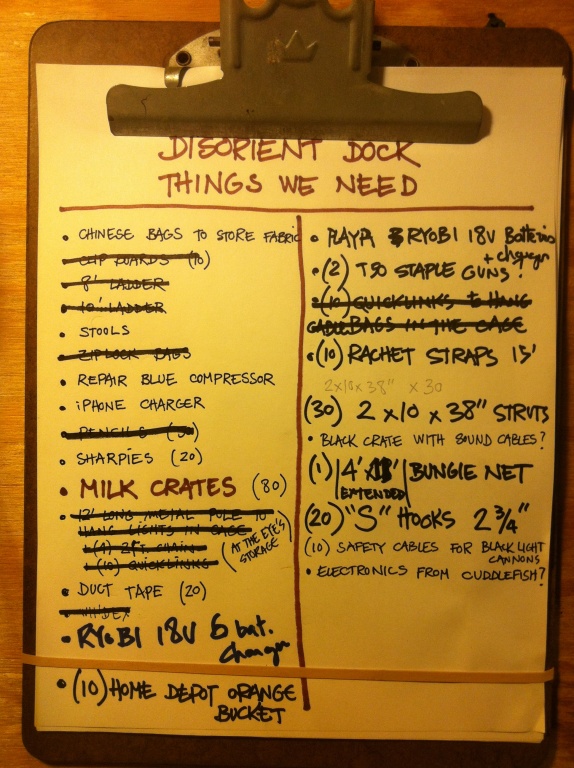 DISORIENT DOCK
THINGS WE NEED
• CHINESE BAGS TO STORE FABRIC
CLIP BOARDS (10)
• 8' LADDER
• 10' LADDER
• STOOLS
• ZIPLOCK BAGS
• REPAIR BLUE COMPRESSOR
• iPHONE CHARGER
• PENCILS
• SHARPIES (20)
• MILK CRATES (80)
• 12' LONG METAL POLE TO
HANG LIGHTS IN CAGE
(4) 2ft. CHAIN
(10) QUICKLINKS
(AT THE EYE'S
STORAGE)
• DUCT TAPE (20)
• WINDEX
• RYOBI 18V 6 bat.
charger
• (10) HOME DEPOT ORANGE
BUCKET
• PLAYA RYOBI 18V Batteries
+ charger
• (2) T50 STAPLE GUNS!
• (10) QUICKLINKS to HANG
BAGS IN THE CAGE
• (10) RACHET STRAPS 15'
2x10x38" x 30
(30) 2 x 10 x 38" STRUTS
• BLACK CRATE WITH SOUND CABLES?
(1) 4' BUNGIE NET
EXTENDED
(20) "S" HOOKS 2 3/4"
(10) SAFETY CABLES FOR BLACK LIGHT
CANNONS
• ELECTRONICS FROM CUDDLEFISH?